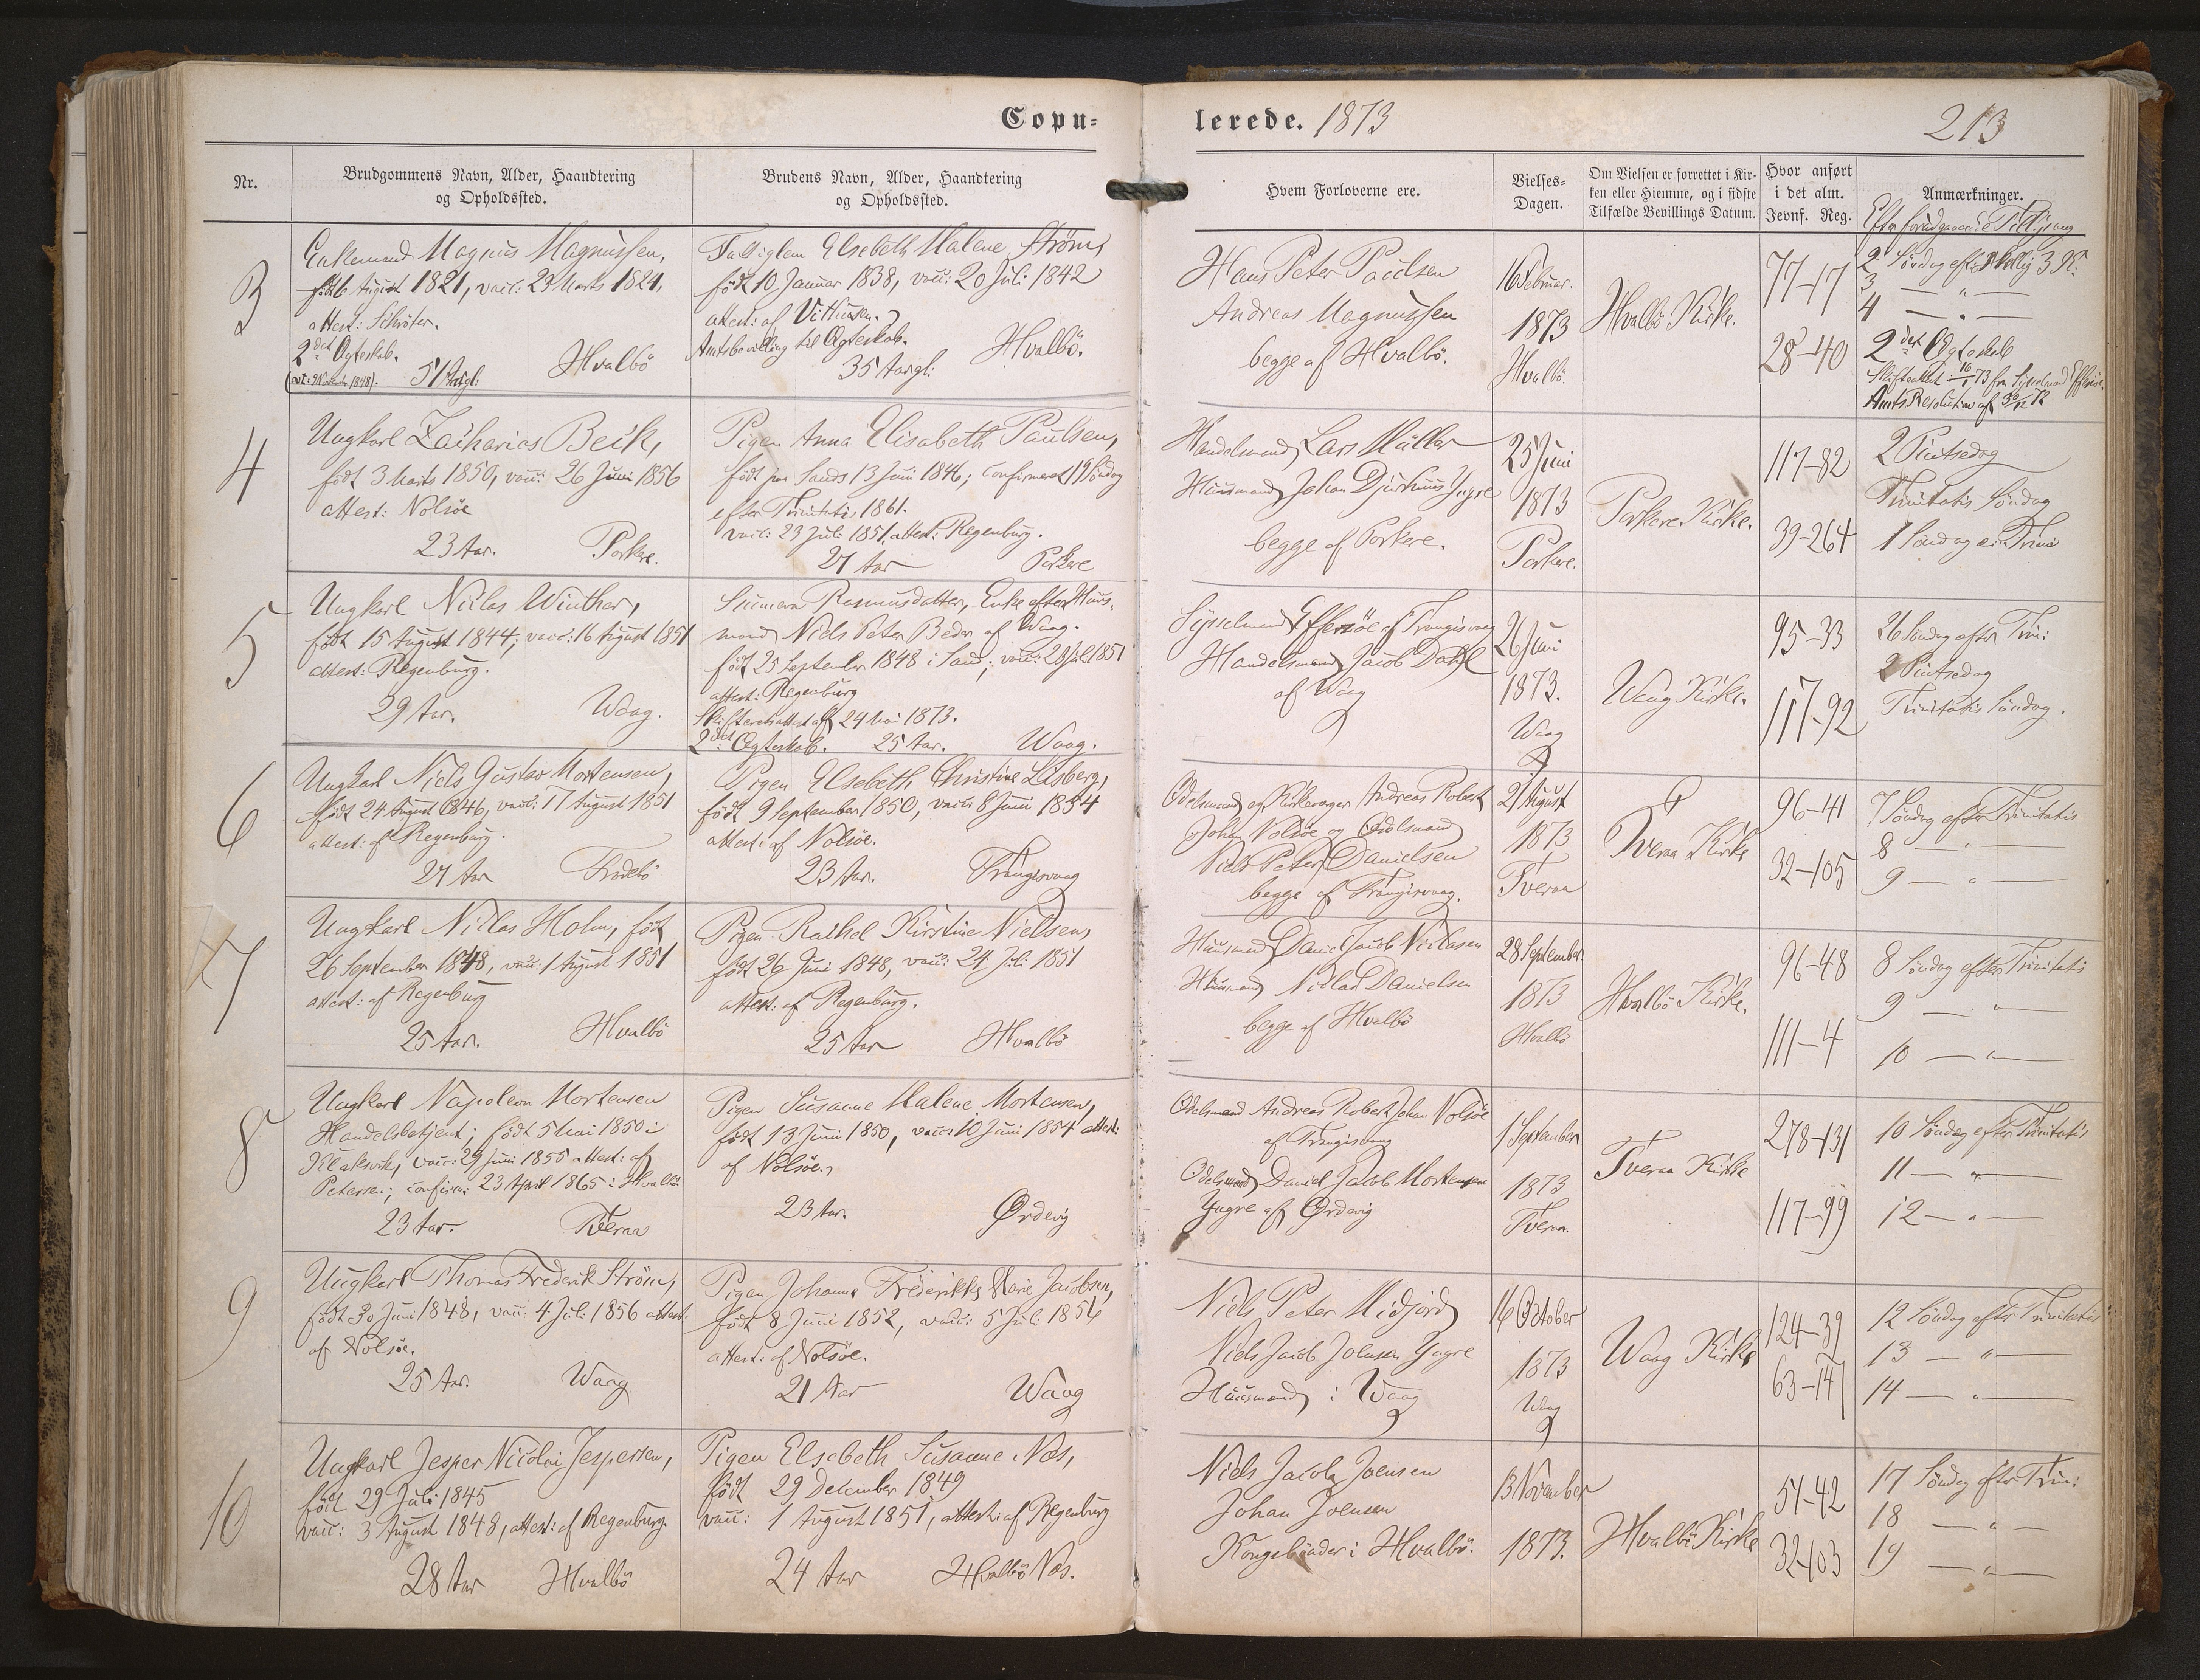 Copu=
lerede. 1873
213
Nr.
Brudgommens Navn, Alder, Haandtering
og Opholdssted.
Brudens Navn, Alder, Haandtering
og Opholdssted.
Hvem Forloverne ere.
Vielses-
Dagen.
Om Vielsen er forrettet i Kir-
ken eller Hiemme, og i sidste
Tilfælde Bevillings Datum.
Hvor anført
i det alm.
Jevnf. Reg.
Anmærkninger.
Efter forudgaaende Tillysning
3
Enkemand Magnus Magnussen,
født August 1821, vacc: 23 Marts 1824,
attest: Schrøter.
2det Ægteskab.
51 Aargl:
Hvalbö
Elsebeth Malene Ström,
født 10 Januar 1838, vacc: 20 Juli 1842
attest: af
Amtsbevilling til Ægteskab.
35 Aargl:
Hvalbö.
Hans Peter Paulsen
Andreas Magnussen
begge af Hvalbö.
16 Februar.
1873
Hvalbö.
Hvalbö Kirke.
77-17
28-40
2 Söndag efter Hellig 3 K:
3 — " —
4 — " —
2det Ægteskab
Skifteattest 16/1 73 fra Sysselmand Effersöe.
Amts Resolution af 30/12 72
4
Ungkarl Zacharias Beck,
født 3 Marts 1850, vacc: 26 Juni 1856
attest: Nolsöe
23 Aar.
Porkere.
Pigen Anna Elisabeth Paulsen,
født paa Sandö 13 Juni 1846; confirmeret 19 Söndag
efter Trinitatis 1861.
vacc: 23 Juli 1851, attest: Regenburg.
27 Aar
Porkere
Handelsmand Lars Müller
Huusmand Johan Djurhuus Yngre
begge af Porkere.
25 Juni
1873
Porkere.
Porkere Kirke.
117-82
39-264
2 Pintsedag
Trinitatis Söndag
1 Söndag e. Trini
5
Ungkarl Niclas Winther,
født 15 August 1844; vacc: 16 August 1851
attest: Regenburg.
29 Aar.
Waag.
Sunneva Rasmusdatter, Enke efter Huus-
mand Niels Peter Beder af Waag.
født 25 September 1848 i Sand; vacc: 28 Juli 1851
attest: Regenburg
Skifteretsattest af 24 Mai 1873.
2det Ægteskab. 25 Aar.
Waag.
Sysselmand Effersöe af Trangisvaag
Handelsmand Jacob Dahl
af Waag
26 Juni
1873.
Waag
Waag Kirke.
95-33
117-92
26 Söndag efter Trin:
2 Pintsedag
Trinitatis Söndag.
6
Ungkarl Niels Gustav Mortensen,
født 24 August 1846, vacc: 17 August 1851
attest: af Regenburg.
27 Aar
Frodebö
Pigen Elsebeth Christine Lisberg,
født 9 September 1850, vacc: 8 Juni 1854
attest: af Nolsöe.
23 Aar.
Trangisvaag
Odelsmand og Kirkeværger Andreas Robert
Johan Nolsöe og Odelsmand
Niels Peter Danielsen
begge af Trangisvaag.
21 August
1873
Tveraa
Tveraa Kirke
96-41
32-105
7 Söndag efter Trinitatis
8 — " —
9 — " —
7
Ungkarl Niclas Holm, født
26 September 1848, vacc: 1 August 1851
attest: af Regenburg
25 Aar.
Hvalbö
Pigen Rachel Kirstine Nielsen,
født 26 Juni 1848, vacc: 24 Juli 1851
attest: af Regenburg.
25 Aar
Hvalbö
Huusmand Daniel Jacob Niclasen
Huusmand Niclas Danielsen
begge af Hvalbö
28 September
1873
Hvalbö
Hvalbö Kirke.
96-48
111-4
8 Söndag efter Trinitatis
9 — " —
10 — " —
8
Ungkarl Napoleon Mortensen
Handelsbetjent; født 5 Mai 1850 i
Klaksvik, vacc: 29 Juni 1855 attest: af
Petersen; confirm: 23 April 1865 i Hvalbö.
23 Aar.
Tveraa
Pigen Susanne Malene Mortensen,
født 13 Juni 1850, vacc: 10 Juni 1854 attest:
af Nolsöe,
23 Aar.
Ördevig
Odelsmand Andreas Robert Johan Nolsöe
af Trangisvaag
Odelsmand Daniel Jacob Mortensen
Yngre af Ördevig
1 September
1873
Tveraa.
Tveraa Kirke
278-131
117-99
10 Söndag efter Trinitatis
11 — " —
12 — " —
9
Ungkarl Thomas Frederik Ström,
født 30 Juni 1848, vacc: 4 Juli 1856 attest:
af Nolsöe.
25 Aar.
Waag
Pigen Johanne Frederikke Marie Jacobsen,
født 8 Juni 1852, vacc: 5 Juli 1856
attest: af Nolsöe.
21 Aar
Waag
Niels Peter Midjord
Niels Jacob Joensen Yngre
Huusmand i Waag
16 October
1873
Waag
Waag Kirke
124-39
63-147
12 Söndag efter Trinitatis
13 — " —
14 — " —
10
Ungkarl Jesper Nicolai Jespersen,
født 29 Juli 1845
vacc: 3 August 1848, attest: af Regenburg.
28 Aar
Hvalbö
Pigen Elsebeth Susanne Næs,
født 29 December 1849
vacc: 1 August 1851, attest: af Regenburg
24 Aar
Hvalbö Næs.
Niels Jacob Joensen
Johan Joensen
Kongsbönder i Hvalbö.
13 November
1873.
Hvalbö Kirke
51-42
32-103
17 Söndag efter Trin:
18 — " —
19 — " —